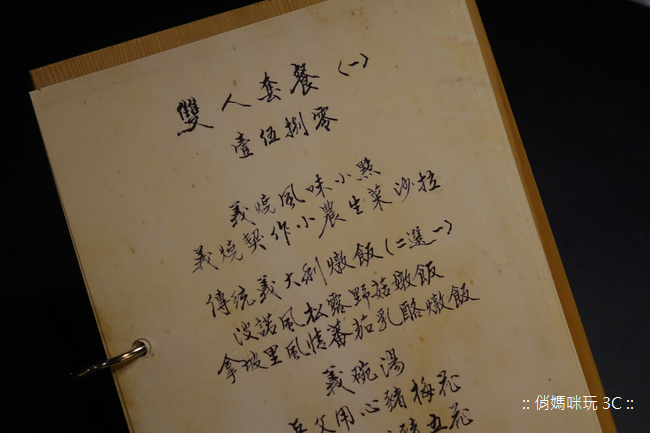 雙人套餐〈一〉
壹伍捌零
義燒風味小點
義燒契作小農生菜沙拉
傳統義大利燉飯(二選一)
波諾風松露野菇燉飯
拿坡里風情番茄乳酪燉飯
義碗湯
用心豬梅花
五花
:: 俏媽咪玩 3C ::